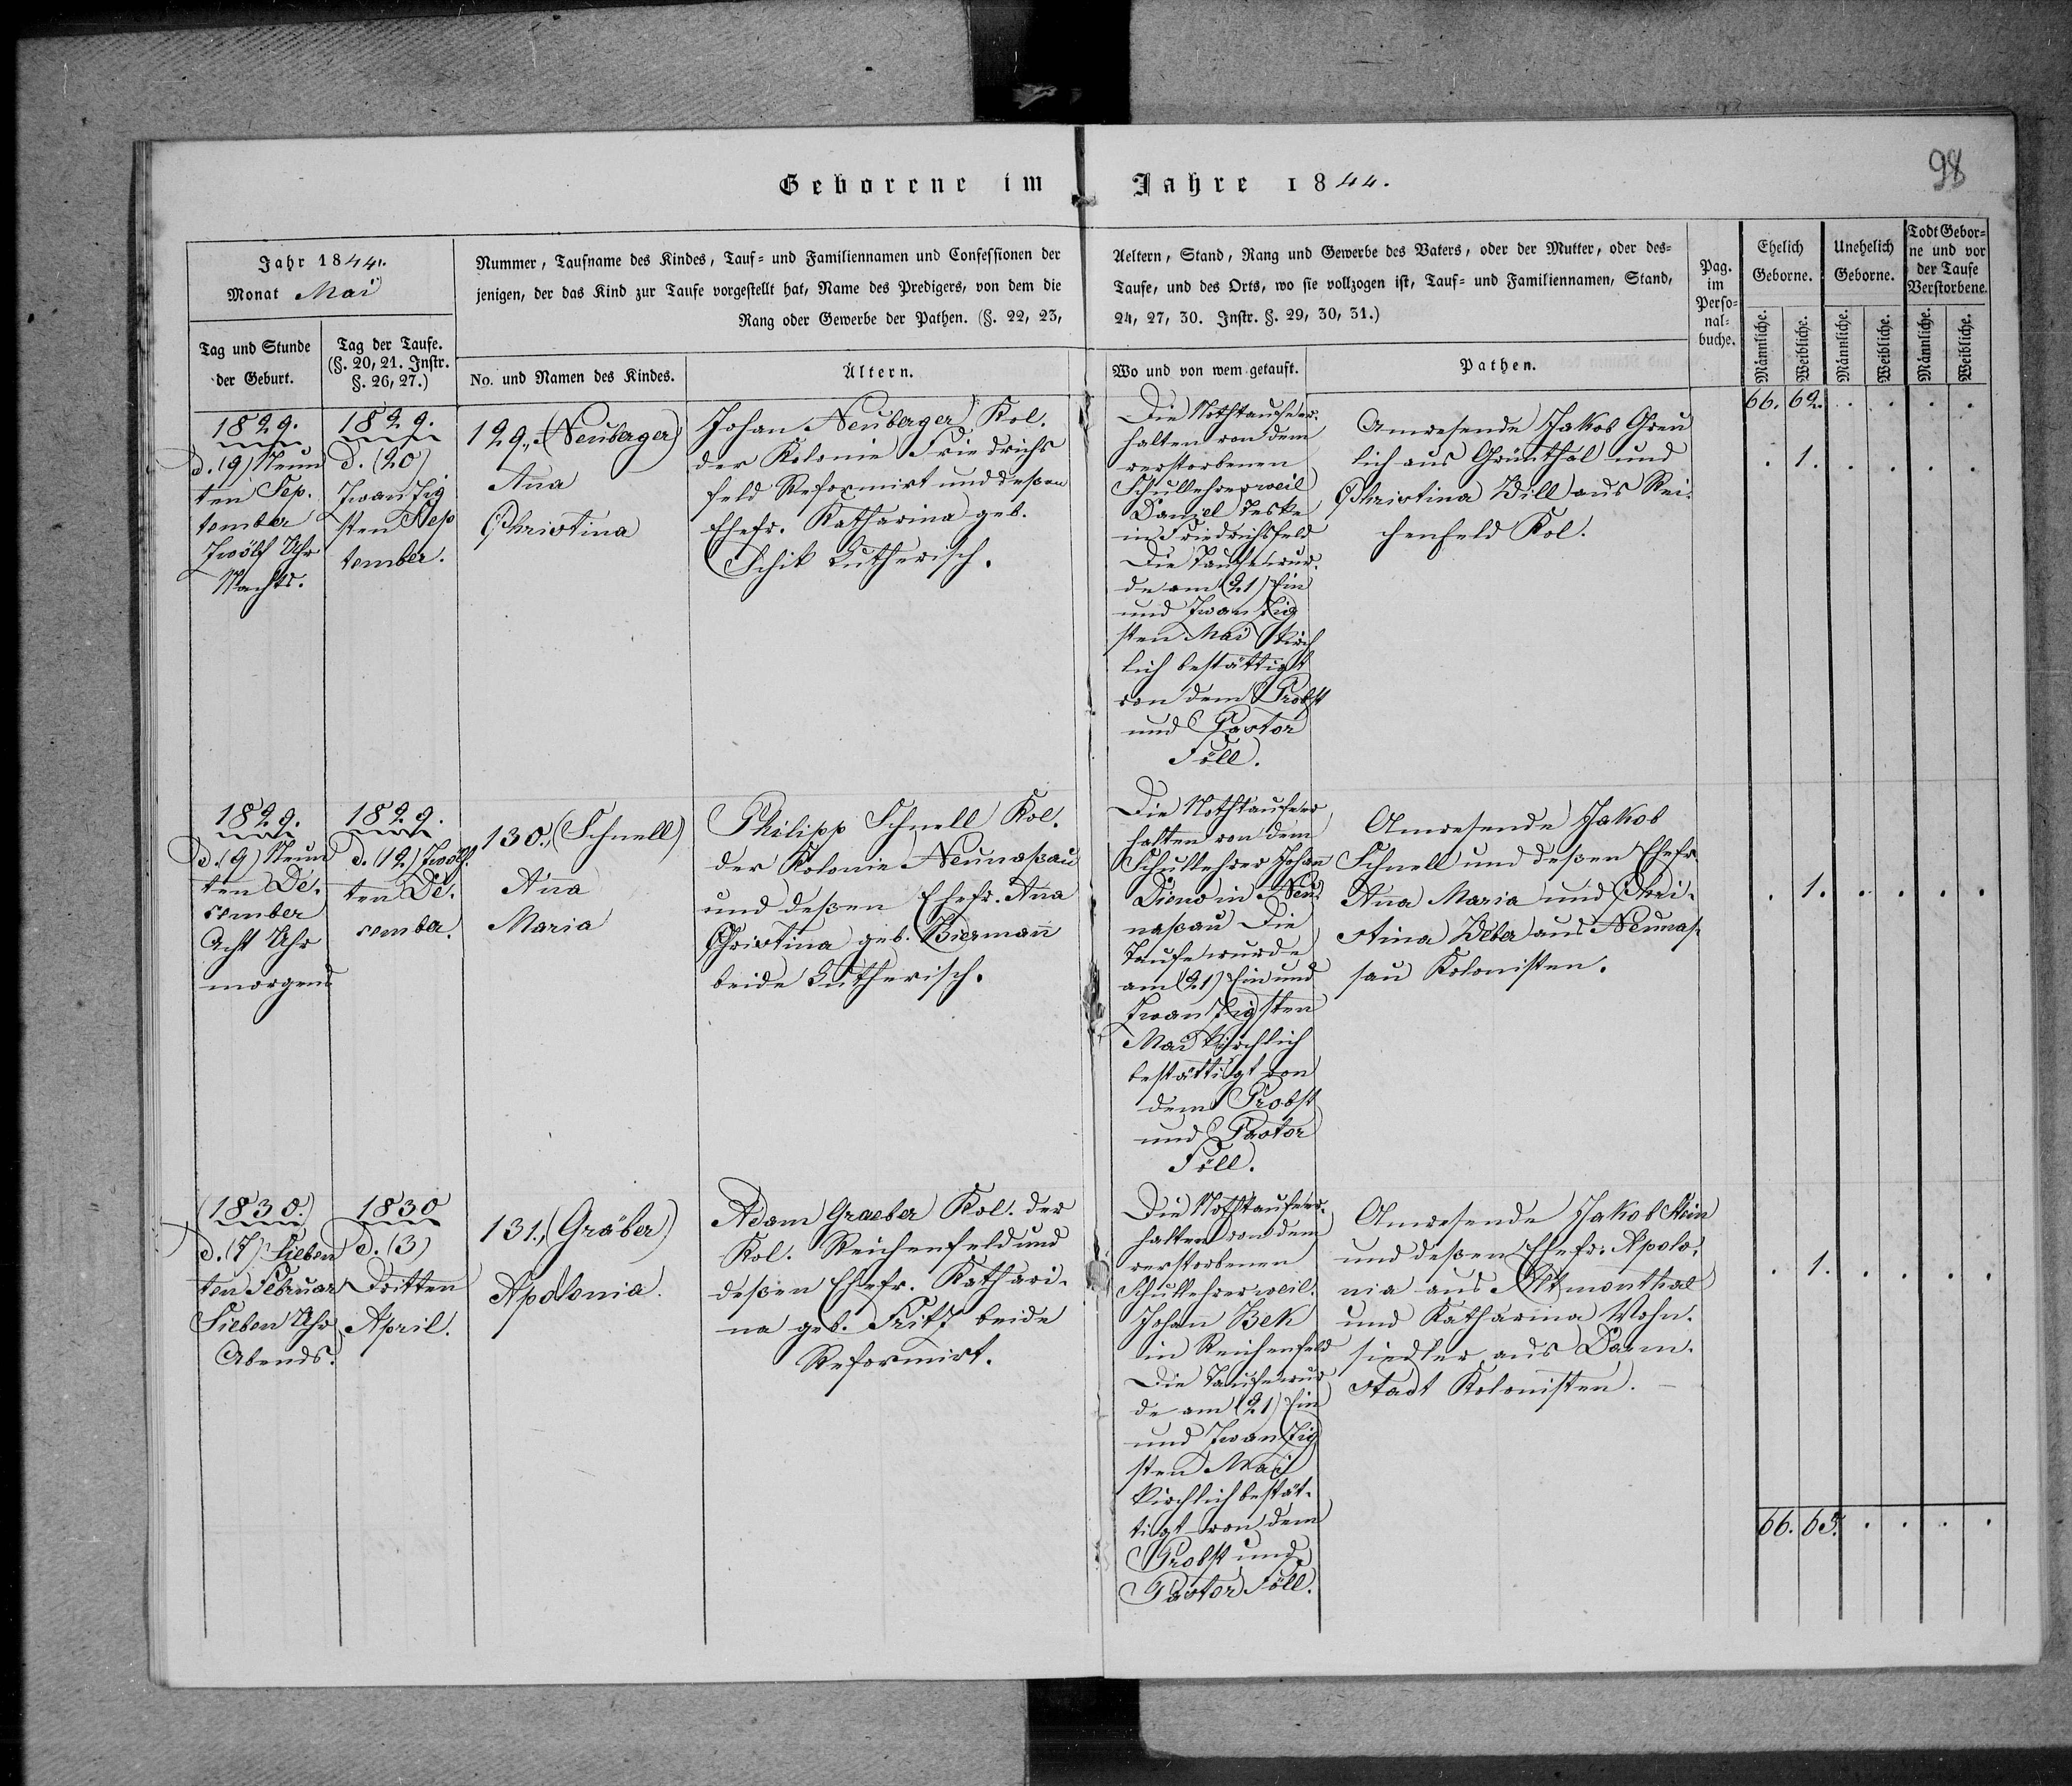 98
Geborene im Jahre 1844.
Jahr 1844.
Monat Mai
Nummer, Taufname des Kindes, Tauf- und Familiennamen und Confessionen der
jenigen, der das Kind zur Taufe vorgestellt hat, Name des Predigers, von dem die
Rang oder Gewerbe der Pathen. (§. 22, 23,
Aeltern, Stand, Rang und Gewerbe des Vaters, oder der Mutter, oder des-
Taufe, und des Orts, wo sie vollzogen ist, Tauf- und Familiennamen, Stand,
24, 27, 30. Instr. §. 29, 30, 31.)
Pag.
im
Perso-
nal-
buche.
Ehelich
Geborne.
Unehelich
Geborne.
Todt Gebor-
ne und vor
der Taufe
Verstorbene.
Tag und Stunde
der Geburt.
Tag der Taufe.
(§. 20, 21. Instr.
§. 26, 27.)
No. und Namen des Kindes.
Ältern.
Wo und von wem getauft.
Pathen.
Männliche.
Weibliche.
Männliche.
Weibliche.
Männliche.
Weibliche.
66. 62. . . . .
1829.
d. (9) Neun
ten Sep.
tember
Zwölf Uhr
Nachts.
1829.
d. (20)
Zwanzig
sten Sep
tember.
129., (Neuberger)
Ana
Christina
Johan Neuberger Kol.
der Kolonie Friedrichs
feld Reformirt und deßen
Ehefr. Katharina geb.
Schik Lutherisch.
Die Nothtaufe er-
halten von dem
verstorbenen
Schullehrer weil
Daniel Peske
in Friedrichsfeld
Die Taufe wur-
de am (21) Ein
und Zwanzig
sten Mai kirch
lich bestättigt
von dem Probst
und Pastor
Föll.
Anwesende Jakob Greu
lich aus Grünthal und
Christina Bill aus Rei-
chenfeld Kol.
. 1. . . . .
1829.
d. (9) Neun
ten De.
cember
Acht Uhr
morgens
1829.
d. (12) Zwölf
ten De.
cember.
130., (Schnell)
Ana
Maria
Philipp Schnell Kol.
der Kolonie Neunaßau
und deßen Ehefr. Ana
Christina geb. Biermann
beide Lutherisch.
Die Nothtaufe er
halten von dem
Schullehrer Johan
Dieno in Neu
naßau Die
Taufe wurde
am (21) Ein und
Zwanzigsten
Mai kirchlich
bestättigt von
dem Probst
und Pastor
Föll.
Anwesende Jakob
Schnell und deßen Ehefr.
Ana Maria und Chri-
stina Weber aus Neunas-
sau Kolonisten.
. 1. . . . .
(1830.)
d. (7) Sieben
ten Februar
Sieben Uhr
Abends.
1830
d. (3)
Dritten
April.
131., (Gräber)
Apolonia.
Adam Graeber Kol. der
Kol. Reichenfeld und
deßen Ehefr. Kathari-
na geb. Fritz beide
Reformirt.
Die Nothtaufe er-
halten von dem
verstorbenen
Schullehrer weil.
Johan Bek
in Reichenfeld
Die Taufe wur
de am (21) Ein
und Zwanzig
sten Mai
kirchlich bestät-
tigt von dem
Probst und
Pastor Föll.
Anwesende Jakob Stein
und deßen Ehefr. Apolo-
nia aus Altmonthal
und Katharina Wohn-
siedler aus Darm-
stadt Kolonisten.
. 1. . . . .
66. 65. . . . .